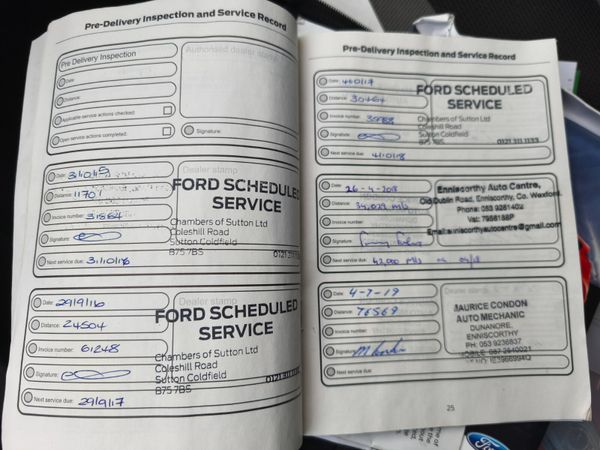 Pre-Delivery Inspection and Service Record
Pre Delivery Inspection
Authorised dealer stamp
Date:
Distance:
Applicable service actions checked:
Open service actions completed:
Signature:
Dealer stamp
Date:
Distance: 11701
Invoice number: 31864
Signature:
Next service due: 31/10/16
FORD SCHEDULED
SERVICE
Chambers of Sutton Ltd
Coleshill Road
Sutton Coldfield
B75 7BS
Dealer stamp
Date: 29/9/16
Distance: 24504
Invoice number: 61248
Signature:
Next service due: 29/9/17
FORD SCHEDULED
SERVICE
Chambers of Sutton Ltd
Coleshill Road
Sutton Coldfield
B75 7BS
Pre-Delivery Inspection and Service Record
Date:
Distance: 30464
Invoice number:
Signature:
Next service due: 4/10/18
FORD SCHEDULED
SERVICE
Chambers of Sutton Ltd
Coleshill Road
Sutton Coldfield
B75 7BS 0121 311 1133
Date: 26-4-2018
Distance: 34,029 mls
Invoice number:
Signature:
Next service due: 42,000 mls
Enniscorthy Auto Centre,
Old Dublin Road, Enniscorthy, Co. Wexford.
Phone: 053 9261402
Email:enniscorthyautocentre@gmail.com
Date: 4-7-19
Distance: 76569
Invoice number:
Signature:
Next service due:
MAURICE CONDON
AUTO MECHANIC
DUNANORE,
ENNISCORTHY
PH: 053 9236837
25
Ford